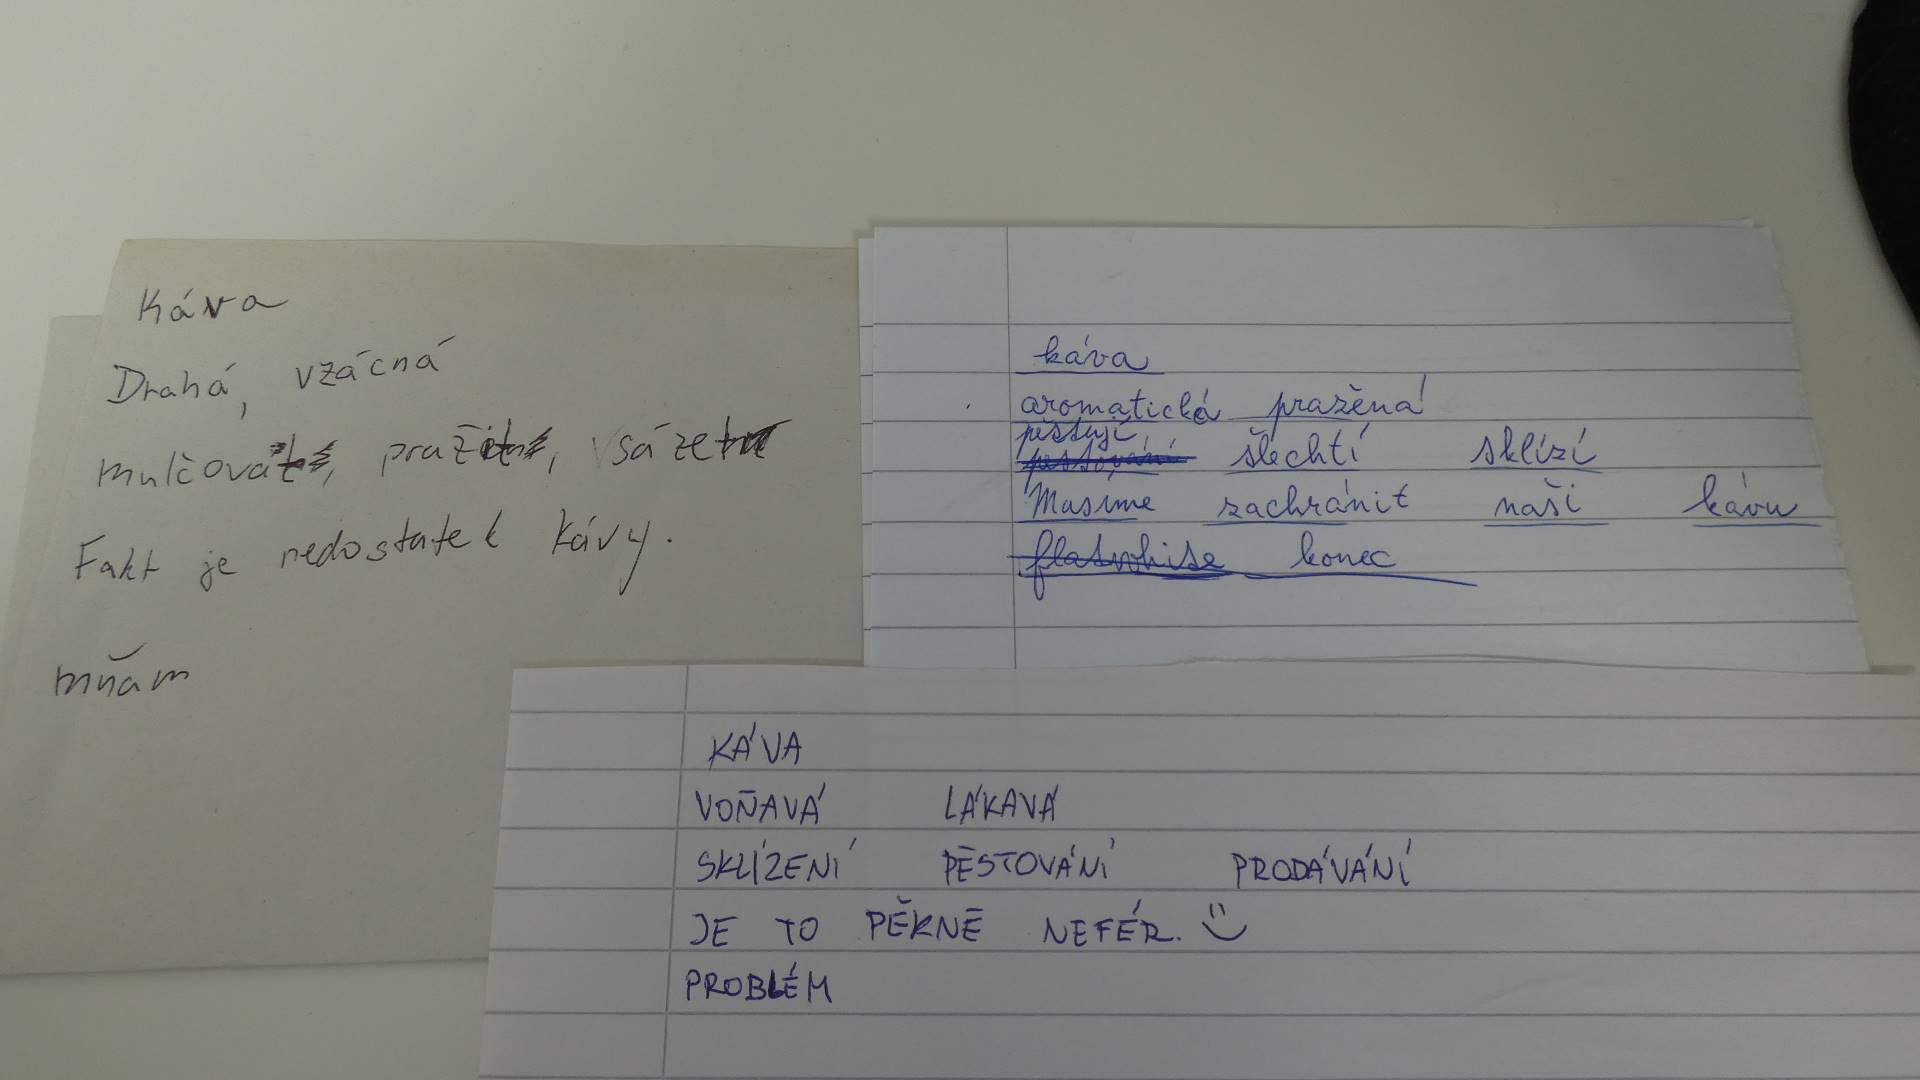 Káva
Drahá, vzácná
mulčovat, pražit, sázet
Fakt je nedostatek kávy.
mňam
káva
aromatická pražená
pěstují
pěstování šlechtí sklízí
Musíme zachránit naši kávu
konec
KÁVA
VOŇAVÁ LÁKAVÁ
SKLÍZENÍ PĚSTOVÁNÍ PRODÁVÁNÍ
JE TO PĚKNĚ NEFÉR.
PROBLÉM